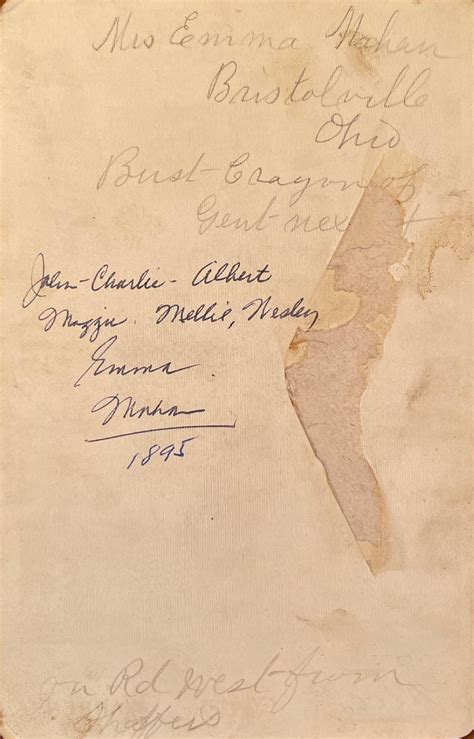 Mrs Emma Mahan
Bristolville
Ohio
Bust-Crayon of
Gent next
John-Charlie-Albert
Mazzie. Mellie, Wesley
Emma
Mahan
1895
on Rd west from
Shaffers